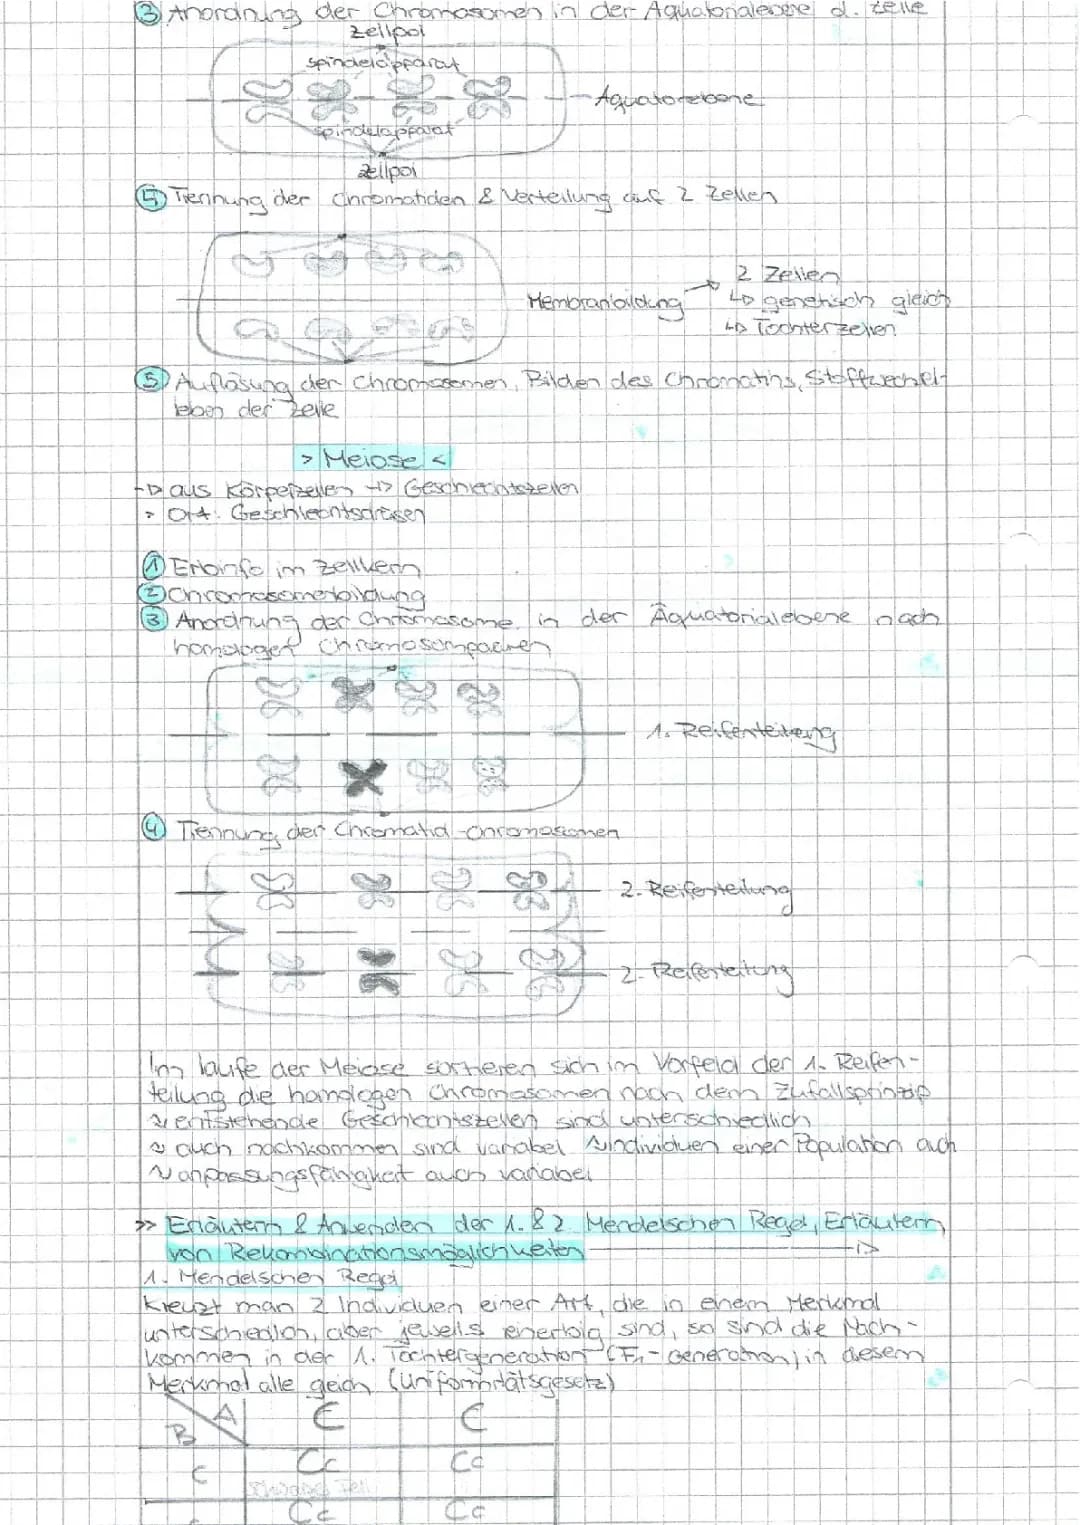 ③ Anordnung der Chromosomen in der Äquatorialebene d. Zelle
Zellpol
Spindelapparat
Äquatorebene
Spindelapparat
Zellpol
④ Trennung der Chromatiden & Verteilung auf 2 Zellen
2 Zellen
Membranbildung
↳ genetisch gleich
↳ Tochterzellen
⑤ Auflösung der Chromosomen, Bilden des Chromatins, Stoffwechsel-
leben der Zelle
> Meiose <
→ aus Körperzellen → Geschlechtszellen
> Ort: Geschlechtsdrüsen
① Erbinfo im Zellkern
② Chromosomenbildung
③ Anordnung der Chromosome in der Äquatorialebene nach
homologen Chromosompaaren
1. Reifenteilung
④ Trennung der Chromatid-Chromosomen
2. Reifenteilung
2. Reifenteilung
Im laufe der Meiose sortieren sich im Vorfeld der 1. Reifen-
teilung die homologen Chromosomen nach dem Zufallsprinzip
~ entstehende Geschlechtszellen sind unterschiedlich
~ auch nachkommen sind variabel ~ individuen einer Population auch
~ anpassungsfähigkeit auch variabel
>> Erläutern & Anwenden der 1. & 2. Mendelschen Regel, Erläutern
von Rekombinationsmöglichkeiten →
1. Mendelschen Regel
Kreuzt man 2 Individuen einer Art, die in einem Merkmal
unterschiedlich, aber jeweils reinerbig sind, so sind die Nach-
kommen in der 1. Tochtergeneration (F₁-Generation) in diesem
Merkmal alle gleich (Uniformitätsgesetz)
A C C
B
c Cc Cc
Cc Cc